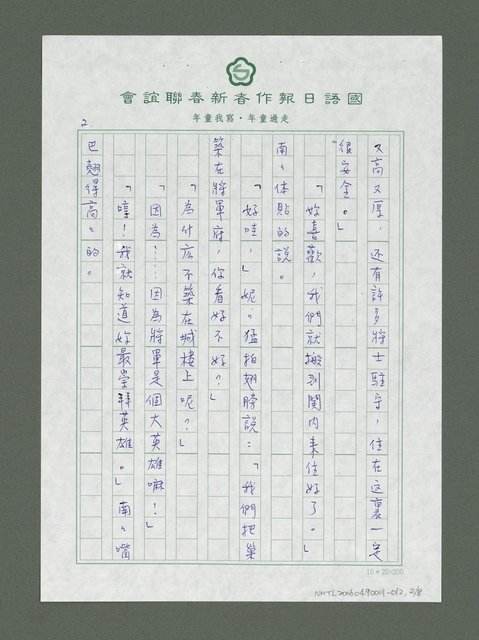 國語日報作者新春聯誼會
走過童年・寫我童年
2.
又高又厚，還有許多將士駐守，住在这裏一定
很安全。」
「妳喜歡，我們就搬到関內来住好了。」
南々体貼的說。
「好哇，」妮々猛拍翅膀說：「我們把巢
築在將軍府，你看好不好？」
「為什庅不築在城樓上呢？」
「因為……因為將軍是個大英雄嘛！」
「哼！我就知道妳最崇拜英雄。」南々嘴
巴翹得高々的。
10×20=200
NMTL20060490001-012, 2/8